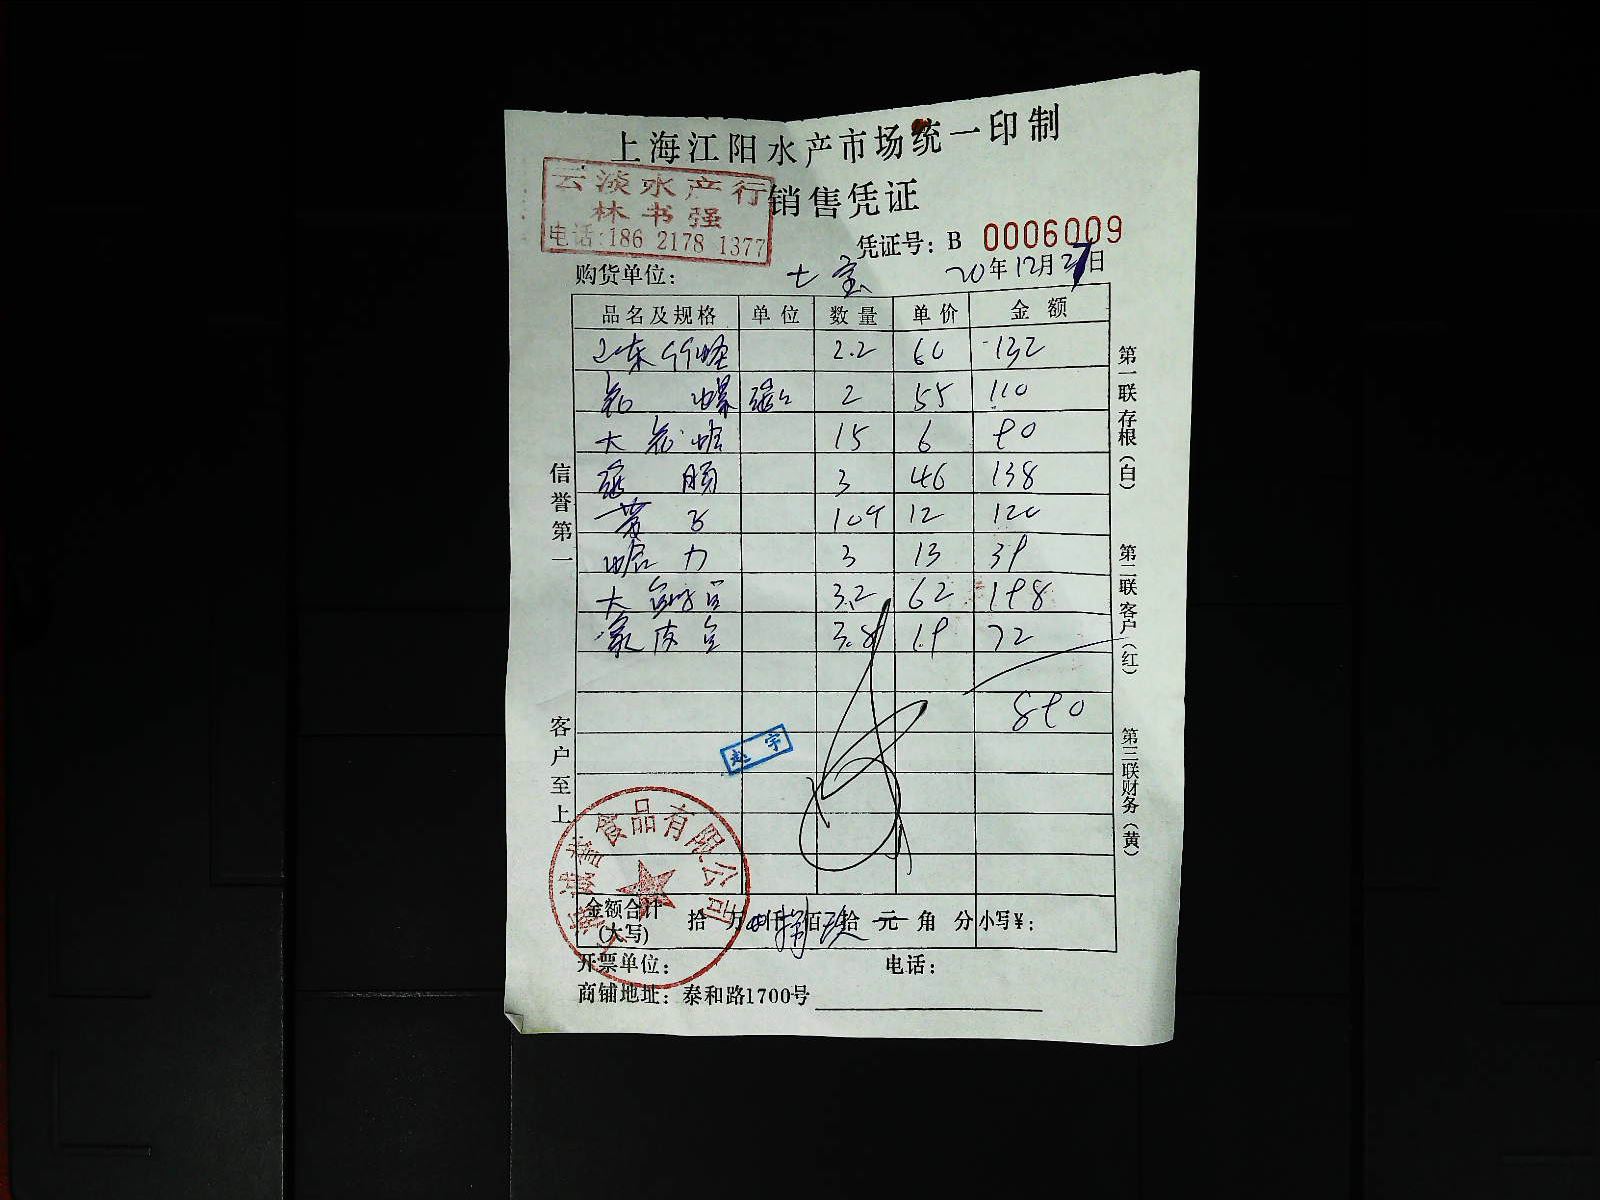 上海江阳水产市场统一印制
销售凭证
云淡水产行
林书强
电话:186 2178 1377
凭证号: B 0006009
购货单位: 七宝 20年12月27日
品名及规格 单位 数量 单价 金额
山东竹蛏 2.2 60 132
花螺 2 55 110
大花蛤 15 6 90
3 46 138
10个 12 120
蛤力 3 13 39
大 3.2 62 198
3.8 19 72
890
信誉第一
客户至上
第一联存根(白)
第二联客户(红)
第三联财务(黄)
赵宇
食品有限公司
金额合计 拾 万 仟 捌佰 玖拾 元 角 分 小写¥:
(大写)
开票单位: 电话:
商铺地址: 泰和路1700号